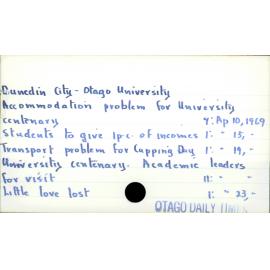 Dunedin City - Otago University
Accommodation problem for University
centenary 7: Ap 10, 1969
Students to give 1p.c. of incomes 1: " 15, -
Transport problem for Capping Day 1: " 19, -
University centenary. Academic leaders
for visit 11: " -
Little love lost 1: " 23, -
OTAGO DAILY TIMES